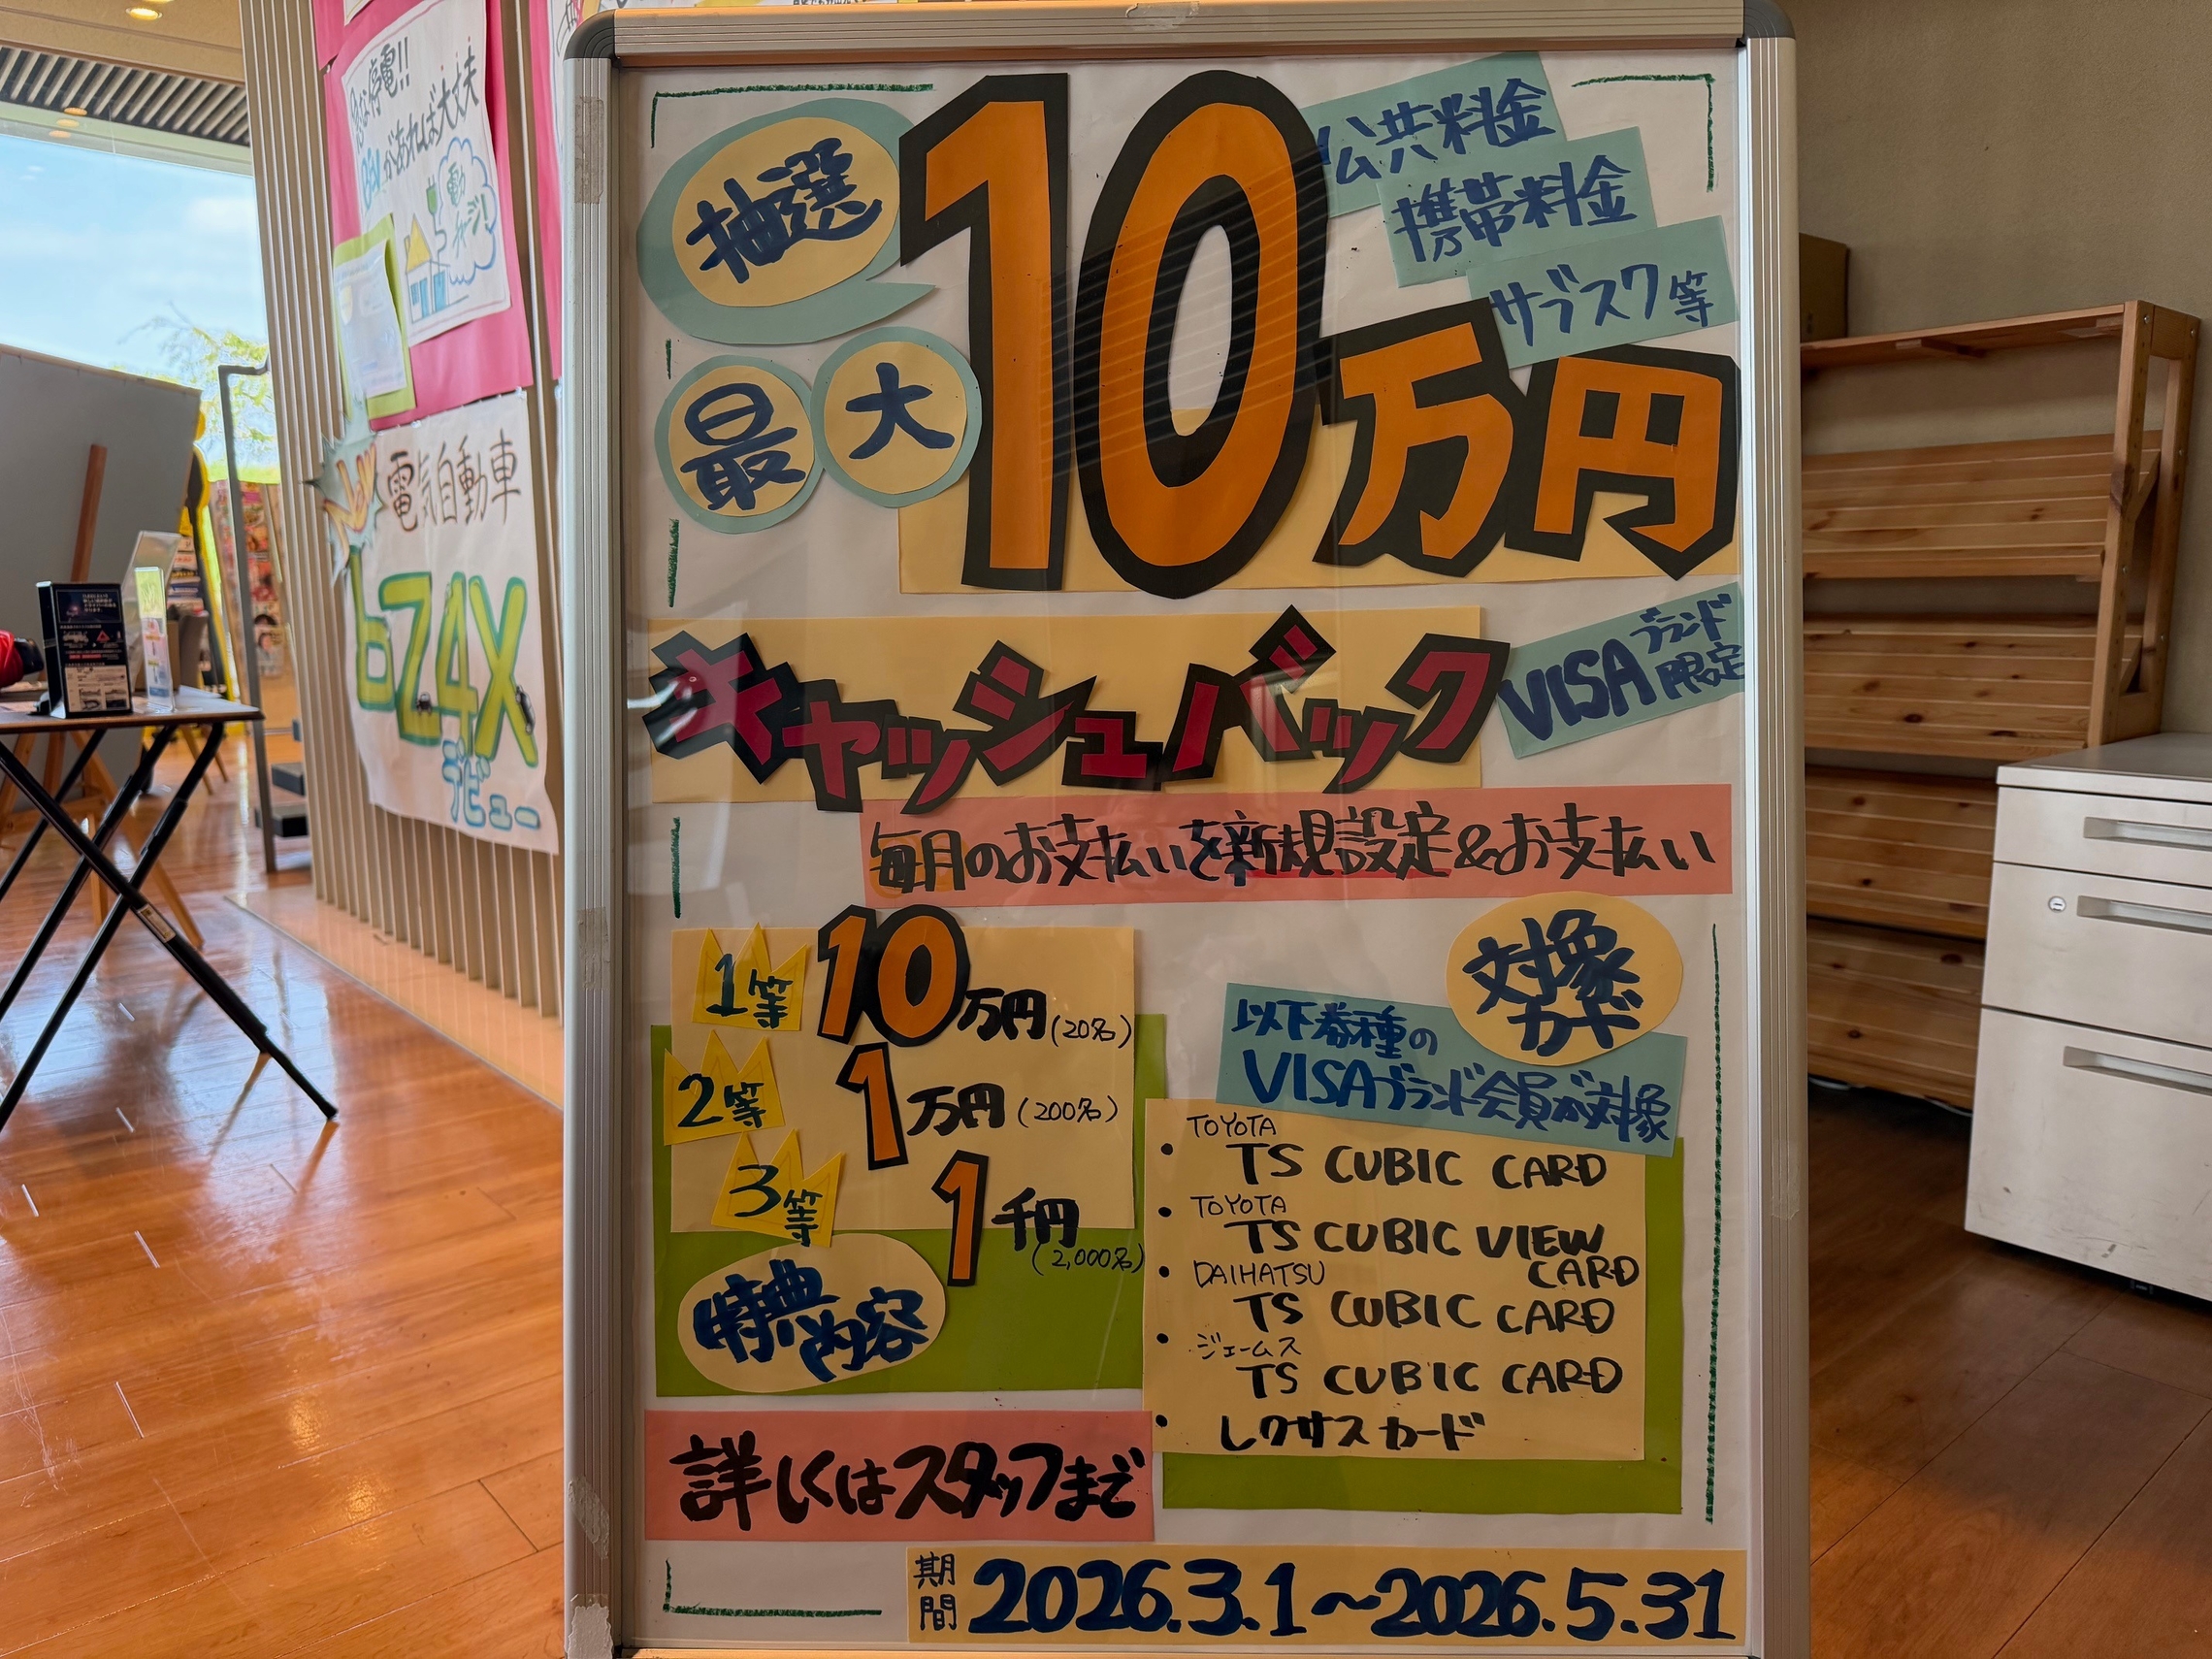 抽選
最大
10万円
公共料金
携帯料金
サブスク等
キャッシュバック
VISAブランド限定
毎月のお支払いを新規設定&お支払い
1等 10万円(20名)
2等 1万円(200名)
3等 1千円(2,000名)
特典内容
対象カード
以下券種の
VISAブランド会員が対象
・TOYOTA
TS CUBIC CARD
・TOYOTA
TS CUBIC VIEW CARD
・DAIHATSU
TS CUBIC CARD
・ジェームス
TS CUBIC CARD
・レクサスカード
詳しくはスタッフまで
期間 2026.3.1～2026.5.31
停電!!
があれば大丈夫
電気自動車
bZ4X
デビュー